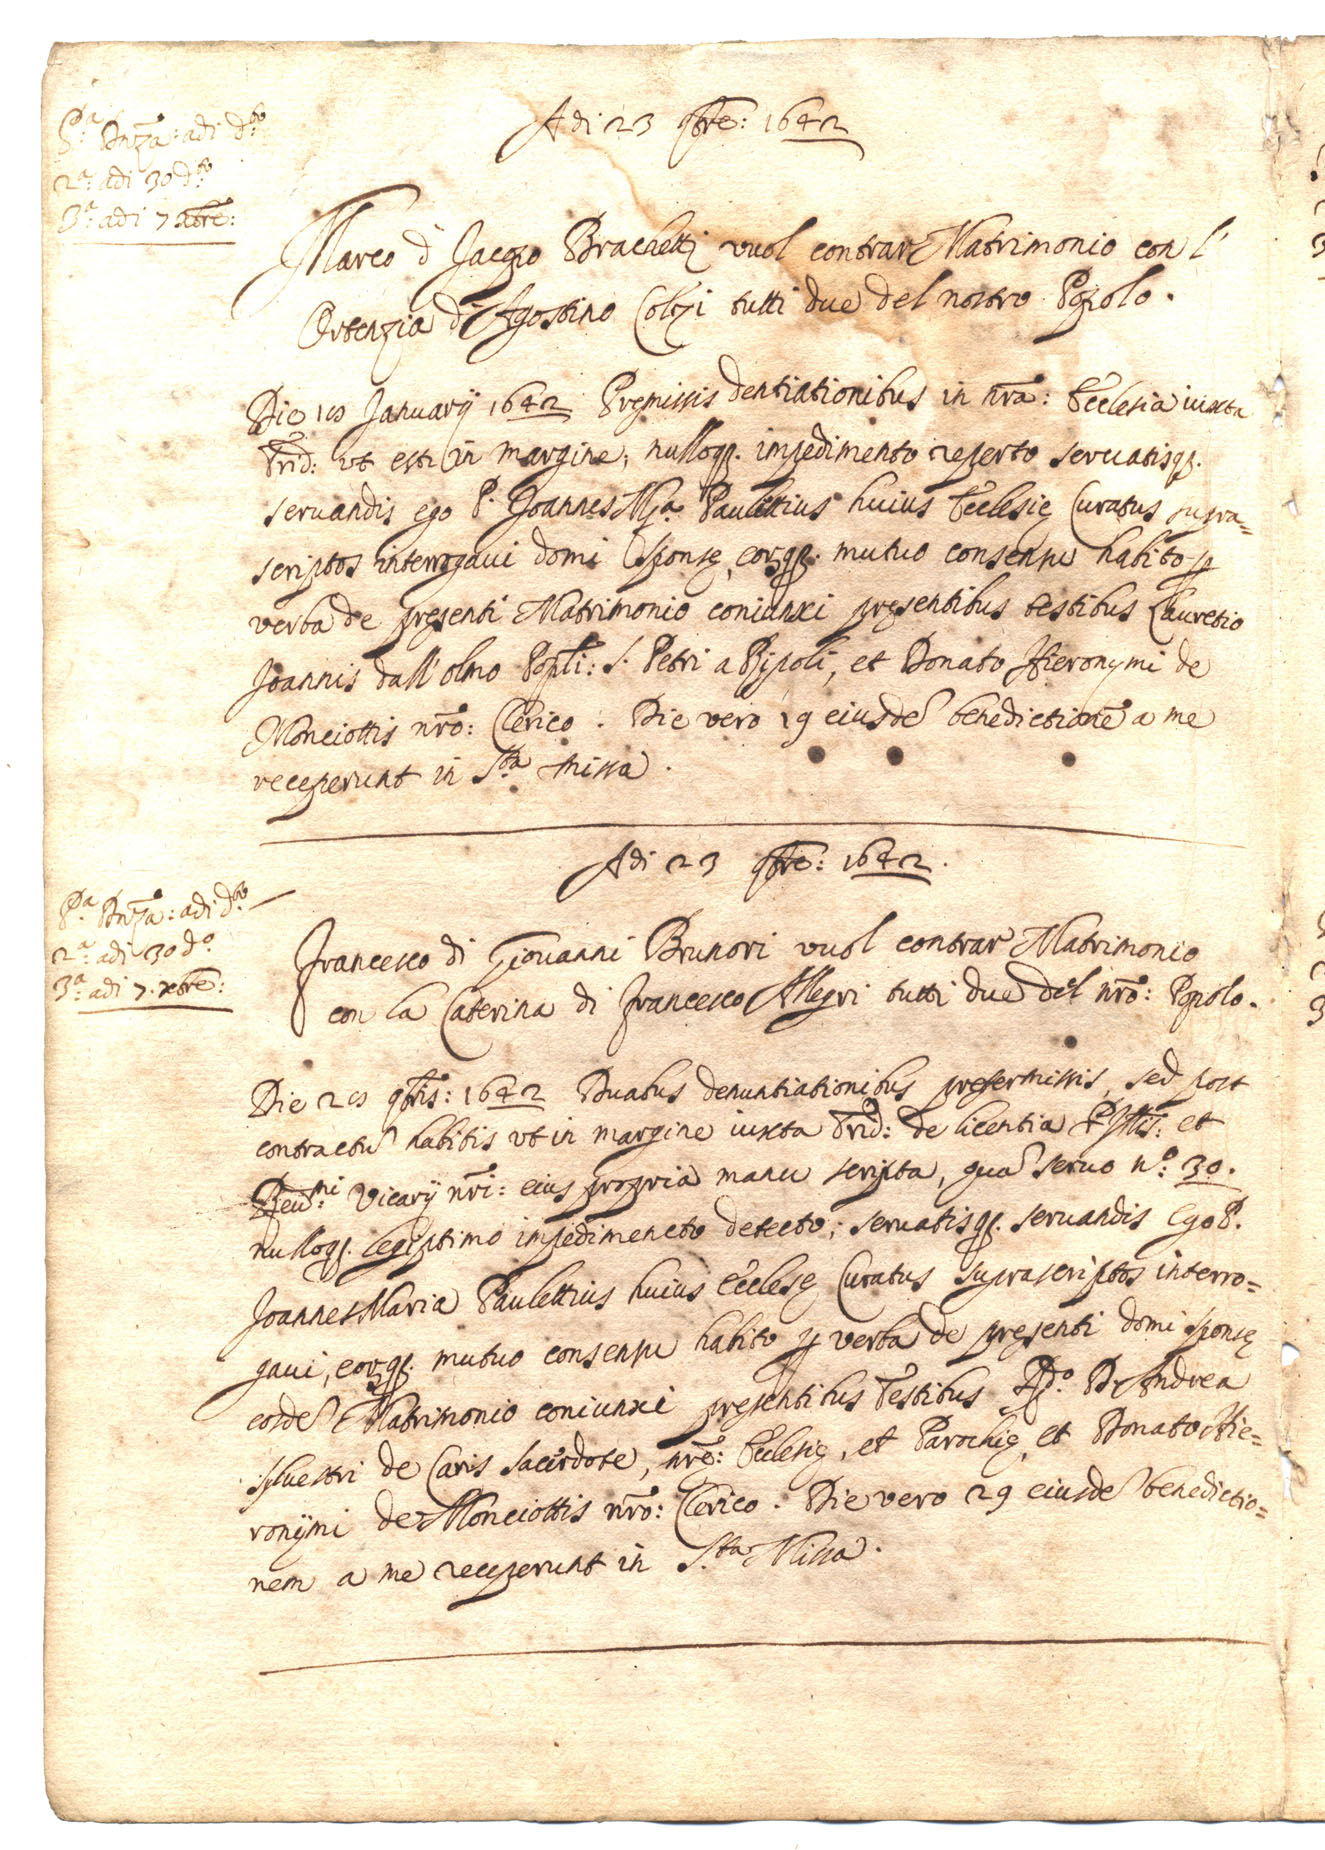 P.ª Dnza: adi d.º
2.ª: adi 30 d.º
3.ª: adi 7 xbre:
Adi 23 9bre: 1642
Marco di Jacopo Brachetti vuol contrar Matrimonio con l'
Ortenzia di Agostino Colzi tutti due del nostro Popolo.
Die Januarij 1642 Premissis dentiationibus in nrã: Ecclesia iuxta
Trid: ut est in margine, nulloq. impedimento reperto seruatisq.
seruandis ego P. Joannes Mª Paulettius huius Ecclesię Curatus supra=
scriptos interrogaui domi sponsę, eorq. mutuo consensu habito p
verba de presenti Matrimonio coniunxi presentibus testibus Lauretio
Joannis dall'olmo Popli: S. Petri a Ripoli, et Donato Hieronymi de
Monciottis nrõ: Clerico. Die vero 19 eiusdẽ benedictionẽ a me
receperunt in S.ta Missa.
Adi 23 9bre: 1642.
P.ª Dnza: adi d.º
2.ª: adi 30 d.º
3.ª: adi 7. xbre:
Francesco di Giouanni Brunori vuol contrar Matrimonio
con la Caterina di Francesco Allegri tutti due del nrõ: Popolo.
Die 9bris: 1642 Duabus denuntiationibus pretermissis, sed post
contractũ habitis ut in margine iuxta Trid: de licentia et
Reu.mi Vicarij nri: eius propria manu scripta, quã seruo nº: 30.
nulloq. legiptimo impedimencto detecto; seruatisq. seruandis Ego P.
Joannes Maria Paulettius huius Ecclesę Curatus suprascriptos interro=
gaui, eorq. mutuo consensu habito p verba de presenti domi sponsę
eosdẽ Matrimonio coniunxi presentibus Testibus Andrea
syluestri de Caris Sacerdote, nrę: Ecclesię, et Parochię, et Donato Hie=
ronÿmi de Monciottis nrõ: Clerico. Die vero 29 eiusdẽ benedictio=
nem a me receperunt in S.ta Missa.